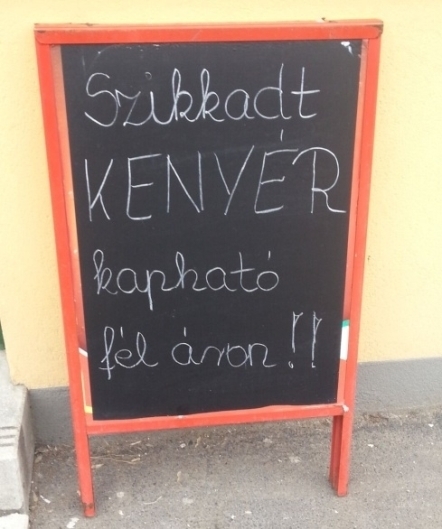 Szikkadt
KENYÉR
kapható
fél áron!!